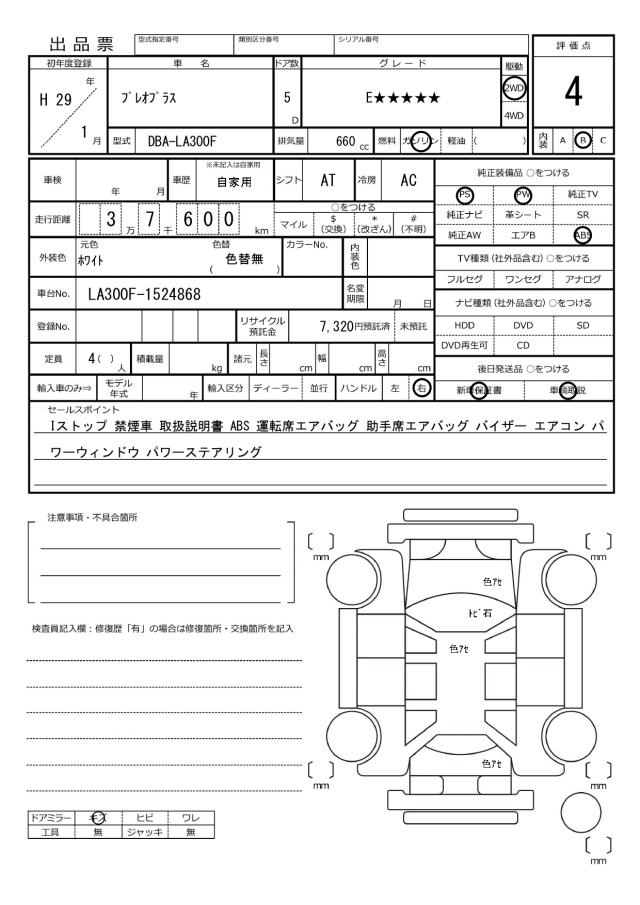 出品票
型式指定番号 類別区分番号 シリアル番号
評価点
初年度登録 車名 ドア数 グレード 駆動
H 29 年 1 月
ﾌﾟﾚｵﾌﾟﾗｽ 5 D E★★★★★ 2WD 4WD
4
型式 DBA-LA300F 排気量 660 cc 燃料 ガソリン 軽油 ( ) 内装 A B C
車検 年 月 車歴 ※未記入は自家用 自家用 シフト AT 冷房 AC
純正装備品 ○をつける
PS PW 純正TV
純正ナビ 革シート SR
純正AW エアB ABS
走行距離 3 万 7 千 6 0 0 km
○をつける
マイル $ (交換) * (改ざん) # (不明)
外装色 元色 ﾎﾜｲﾄ 色替 ( 色替無 ) カラーNo. 内装色
TV種類 (社外品含む) ○をつける
フルセグ ワンセグ アナログ
車台No. LA300F-1524868 名変期限 月 日
ナビ種類 (社外品含む) ○をつける
登録No. リサイクル預託金 7,320円預託済 未預託
HDD DVD SD
DVD再生可 CD
定員 4 ( ) 人 積載量 kg 諸元 長さ cm 幅 cm 高さ cm
後日発送品 ○をつける
輸入車のみ⇒ モデル年式 年 輸入区分 ディーラー 並行 ハンドル 左 右
新車保証書 車輌取説
セールスポイント
Iストップ 禁煙車 取扱説明書 ABS 運転席エアバッグ 助手席エアバッグ バイザー エアコン パ
ワーウィンドウ パワーステアリング
注意事項・不具合箇所
検査員記入欄：修復歴「有」の場合は修復箇所・交換箇所を記入
〔 〕 mm
〔 〕 mm
色ｱｾ
ﾄﾋﾞ石
色ｱｾ
色ｱｾ
〔 〕 mm
〔 〕 mm
〔 〕 mm
ドアミラー キズ ヒビ ワレ
工具 無 ジャッキ 無